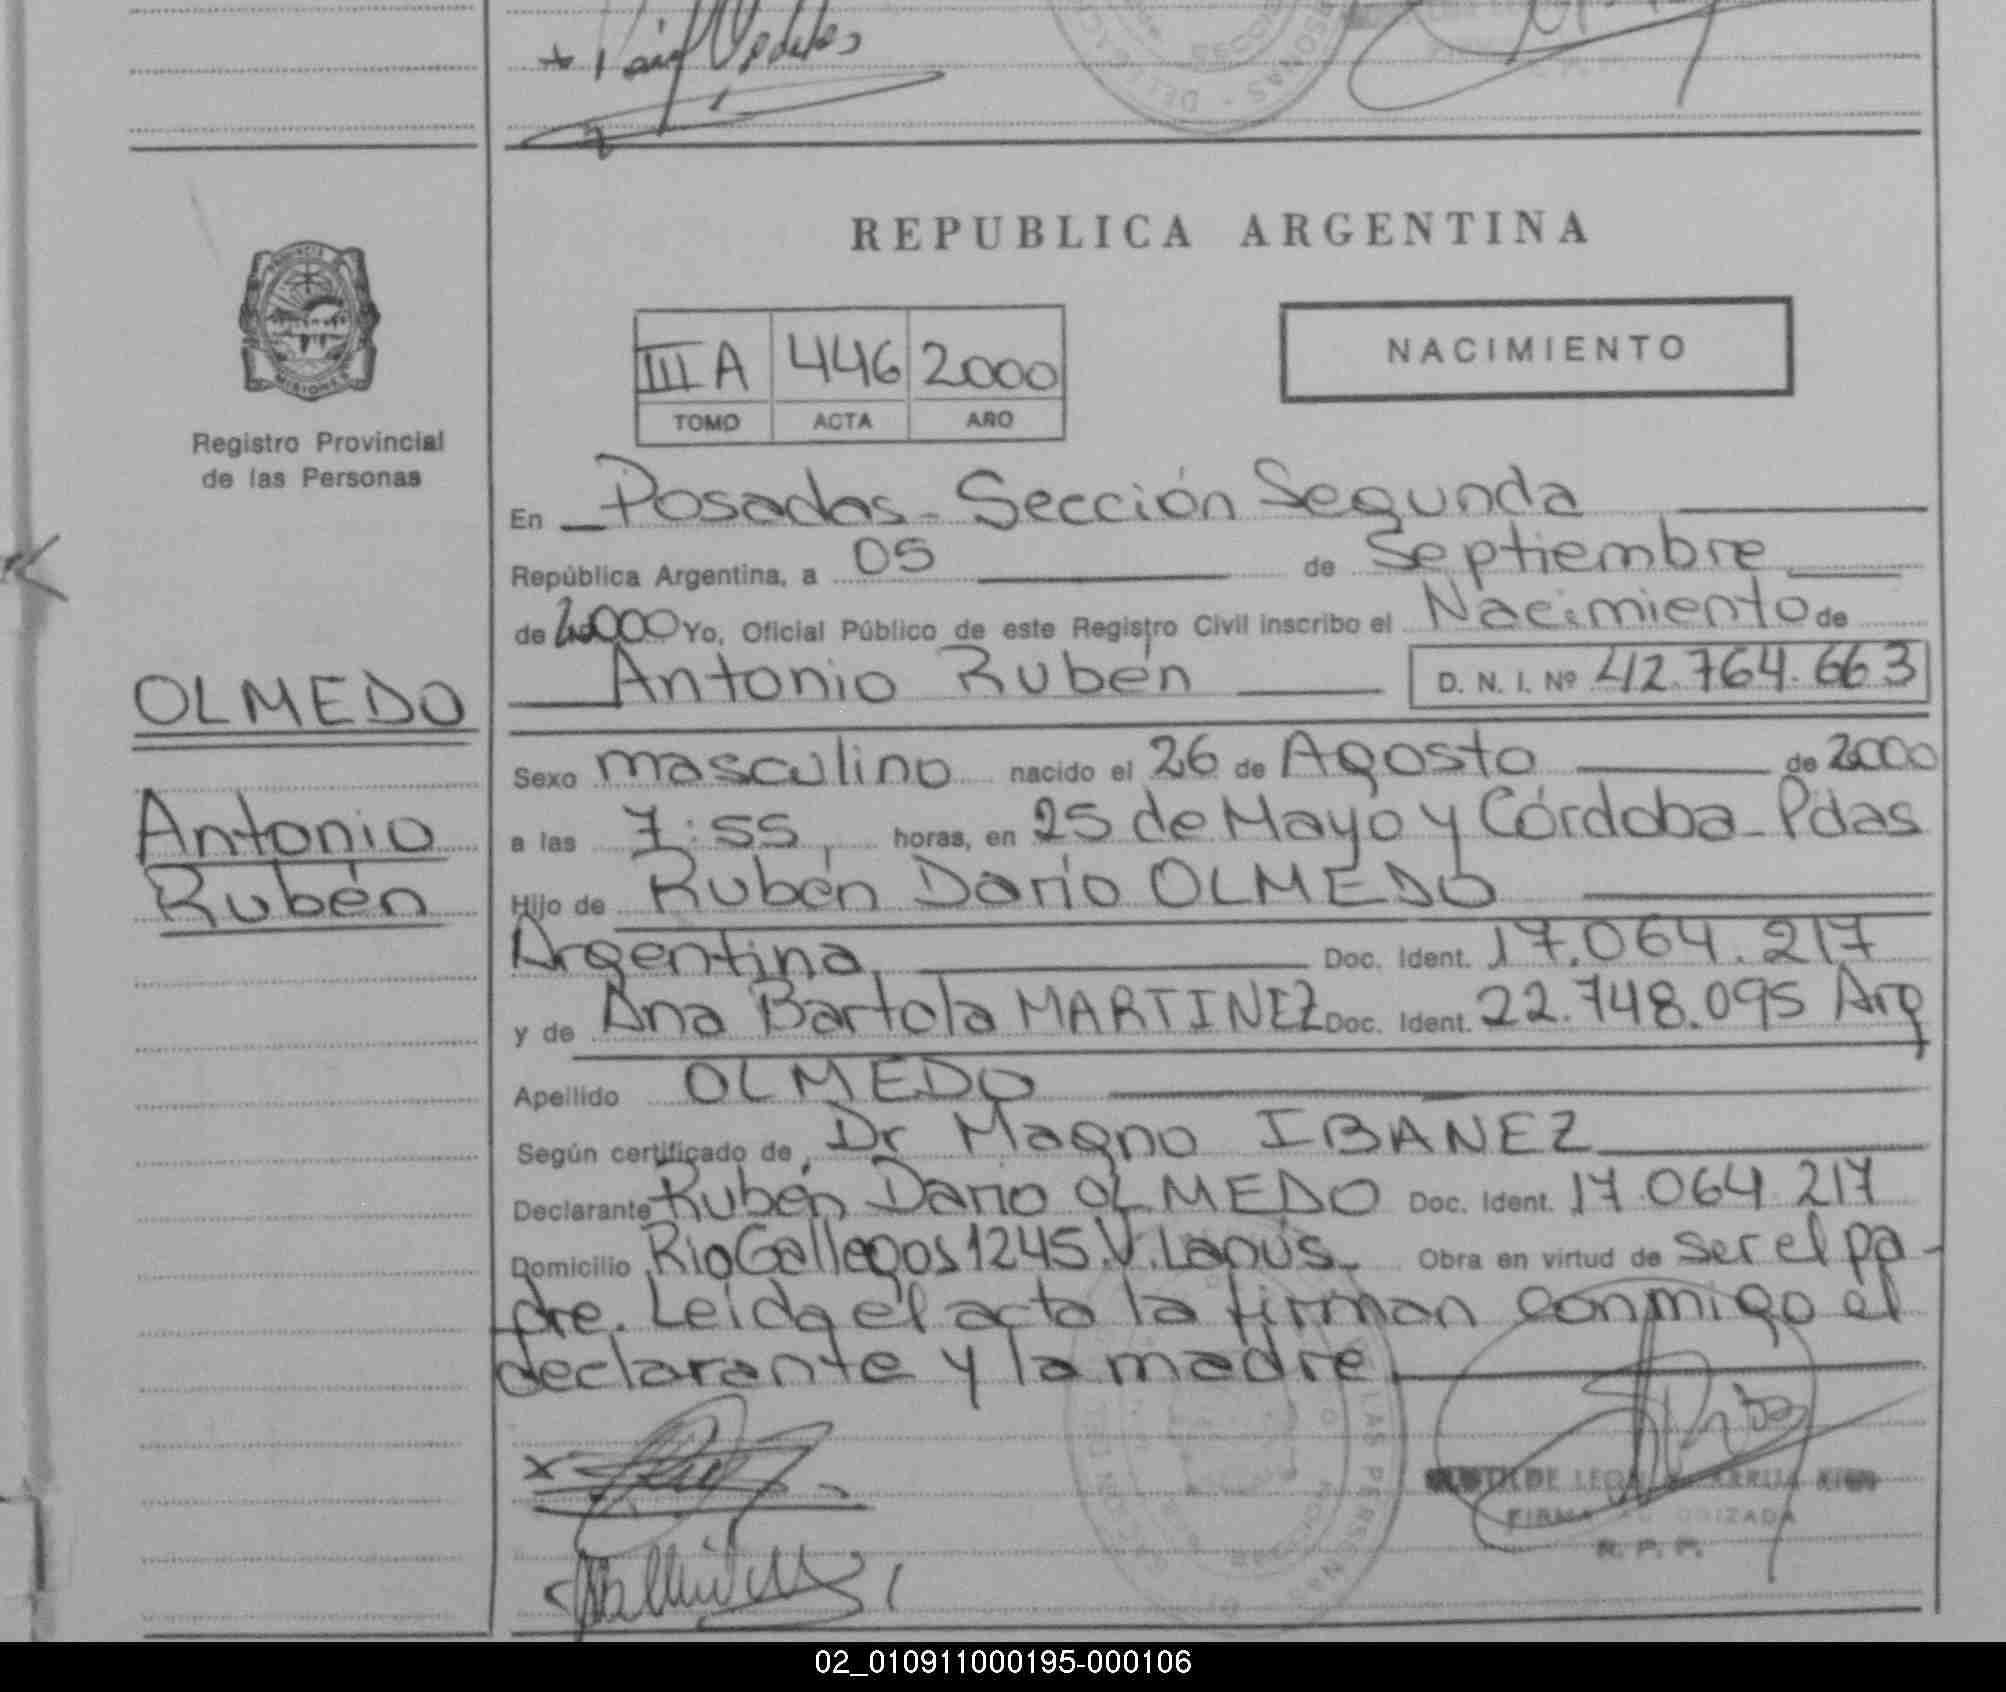 REPUBLICA ARGENTINA
PROVINCIA
MISIONES
Registro Provincial
de las Personas
III A 446 2000
TOMO ACTA AÑO
NACIMIENTO
En Posadas - Sección Segunda
República Argentina, a 05 de Septiembre
de 2000 Yo, Oficial Público de este Registro Civil inscribo el Nacimiento de
Antonio Rubén D. N. I. Nº 42.764.663
OLMEDO
Antonio
Rubén
Sexo masculino nacido el 26 de Agosto de 2000
a las 7:55, horas, en 25 de Mayo y Córdoba - Pdas
Hijo de Rubén Darío OLMEDO
Argentina Doc. Ident. 17.064.217
y de Ana Bartola MARTINEZ Doc. Ident. 22.748.095 Arg
Apellido OLMEDO
Según certificado de, Dr Magno IBANEZ
Declarante Rubén Dario OLMEDO Doc. Ident. 17.064.217
Domicilio Rio Gallegos 1245. V. Lanús. Obra en virtud de ser el pa-
dre. Leída el acta la firman conmigo el
declarante y la madre
FIRMA AUTORIZADA
R. P. P.
02_010911000195-000106